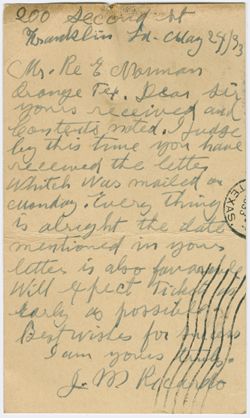 200 Second St
Franklin La - May 29/33
Mr. Re E Norman
Orange Tex. Dear Sir
yours received and
Contents noted. Judge
by this time you have
received the letter
Whitch Was mailed on
Monday. Every thing
is alright the date
mentioned in your
letter is also favorable
Will expect ticket as
early as possible.
Best wishes for success
I am yours truly.
J. M Ricardo
TEXAS